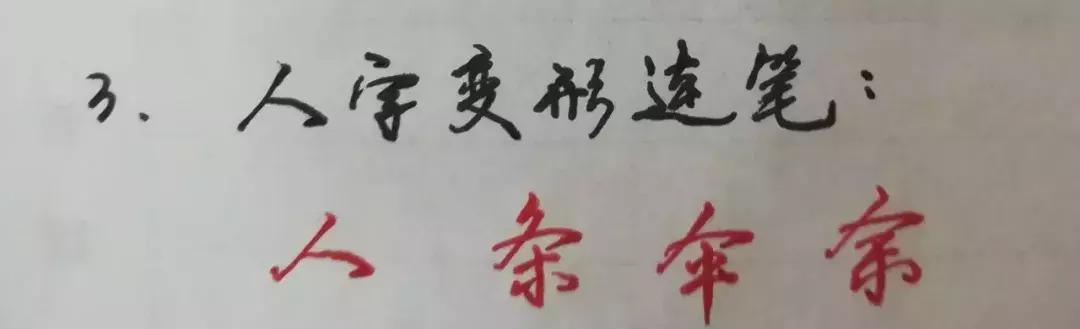 3. 人字变形连笔：
人 条 伞 余